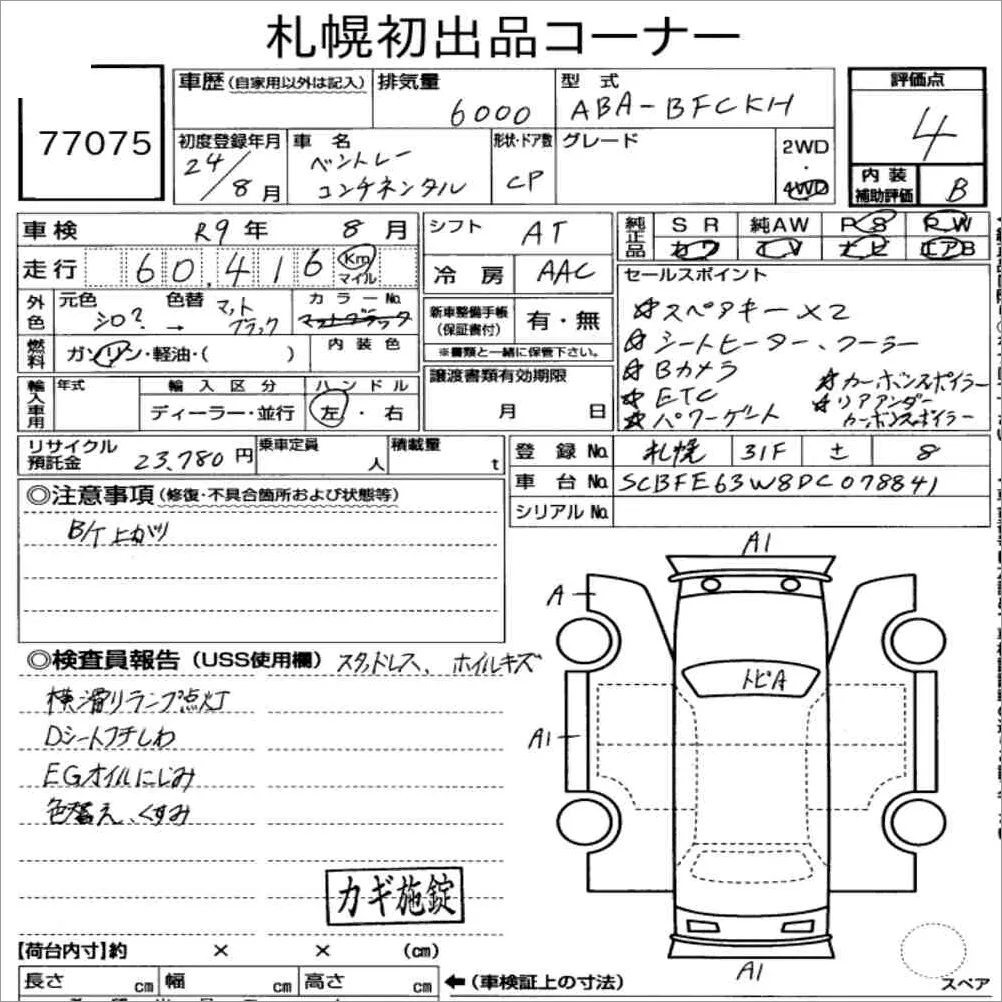 札幌初出品コーナー
77075
車歴(自家用以外は記入)
排気量 6000
型式 ABA-BFCKH
評価点 4
初度登録年月 24/8月
車名 ベントレー コンチネンタル
形状・ドア数 CP
グレード
2WD・4WD
内装補助評価 B
車検 R9年 8月
シフト AT
純正品 SR 純AW PS PW
カワ TV ナビ エアB
走行 60,416 Km マイル
冷房 AAC
セールスポイント
☆スペアキー×2
☆シートヒーター、クーラー
☆Bカメラ
☆ETC
☆パワーゲート
☆カーボンスポイラー
☆リアアンダーカーボンスポイラー
外色 元色 シロ? → 色替 マットブラック
カラーNo. マットブラック
新車整備手帳(保証書付) 有・無
※書類と一緒に保管下さい。
燃料 ガソリン・軽油・( )
内装色
輸入車用 年式
輸入区分 ディーラー・並行
ハンドル 左・右
譲渡書類有効期限 月 日
リサイクル預託金 23,780円
乗車定員 人
積載量 t
登録No. 札幌 31F ± 8
車台No. SCBFE63W8DC078841
シリアルNo.
◎注意事項(修復・不具合箇所および状態等)
B/T上がり
◎検査員報告(USS使用欄) スタッドレス、ホイルキズ
横滑りランプ点灯
Dシートフチしわ
EGオイルにじみ
色替え、くすみ
カギ施錠
A1
A
トビA
A1
A1
スペア
【荷台内寸】約 × × (cm)
長さ cm 幅 cm 高さ cm
←(車検証上の寸法)